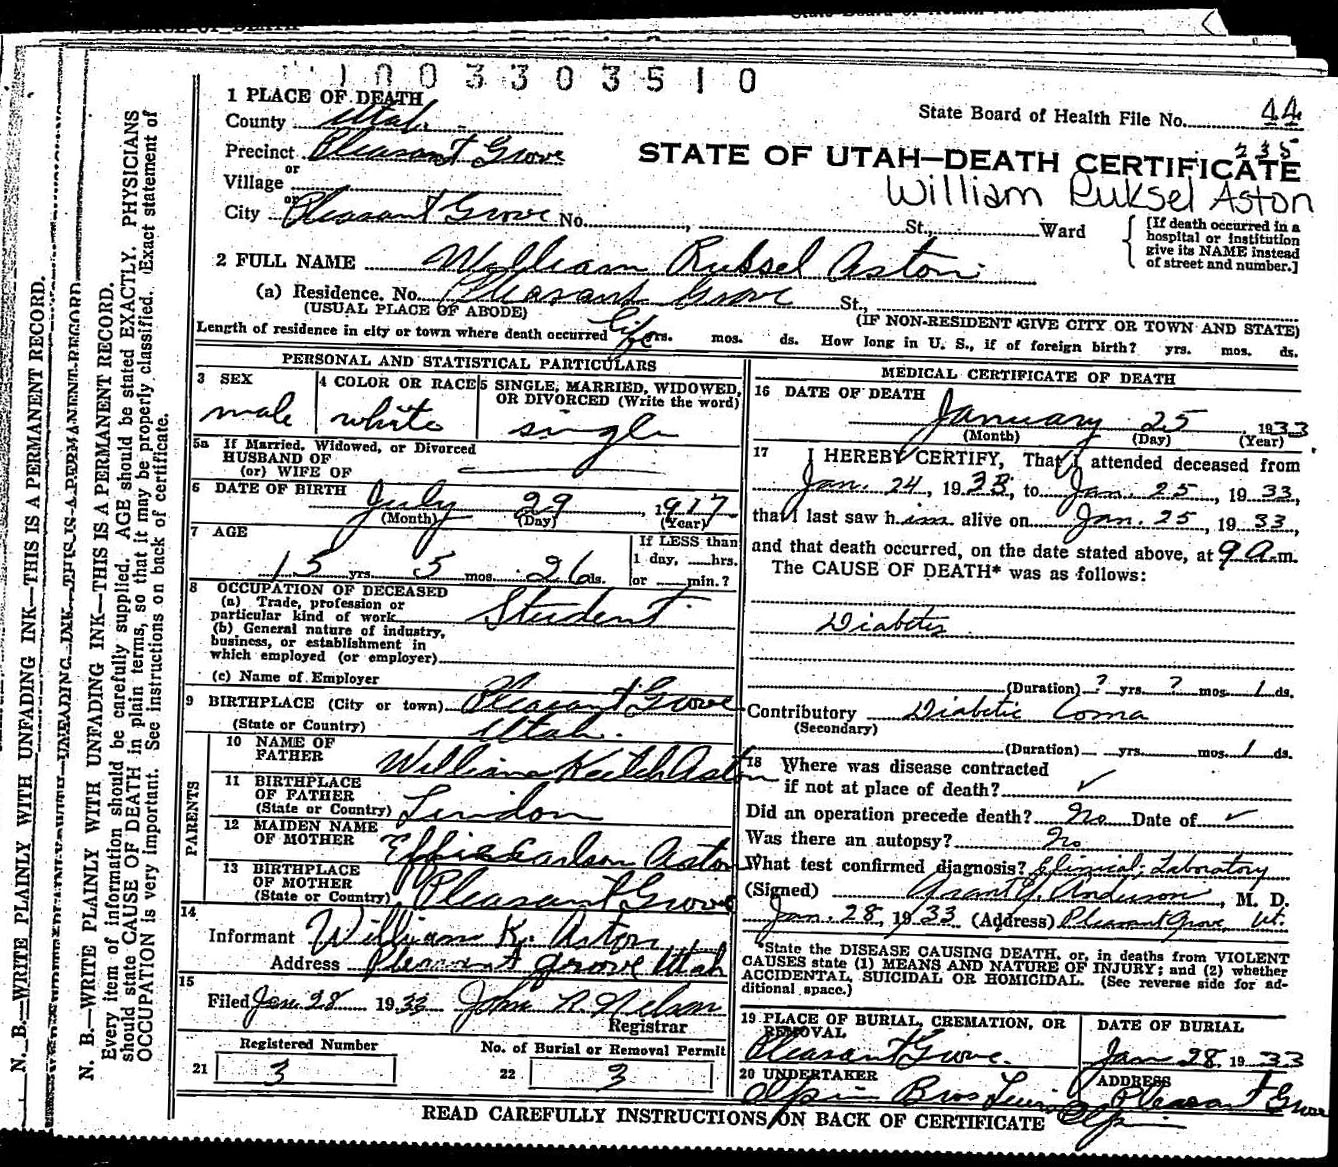 1003303510
1 PLACE OF DEATH
State Board of Health File No. 44
235
County Utah
Precinct Pleasant Grove
STATE OF UTAH—DEATH CERTIFICATE
William Ruksel Aston
or
Village
or
City Pleasant Grove No. , St., Ward
[If death occurred in a
hospital or institution
give its NAME instead
of street and number.]
2 FULL NAME William Ruksel Aston
(a) Residence. No. Pleasant Grove St.,
(USUAL PLACE OF ABODE)
(IF NON-RESIDENT GIVE CITY OR TOWN AND STATE)
Length of residence in city or town where death occurred Life yrs. mos. ds. How long in U. S., if of foreign birth? yrs. mos. ds.
PERSONAL AND STATISTICAL PARTICULARS
3 SEX
male
4 COLOR OR RACE
white
5 SINGLE, MARRIED, WIDOWED,
OR DIVORCED (Write the word)
single
5a If Married, Widowed, or Divorced
HUSBAND OF
(or) WIFE OF
6 DATE OF BIRTH July 29, 1917
(Month) (Day) (Year)
7 AGE
15 yrs. 5 mos. 26 ds.
If LESS than
1 day, hrs.
or min.?
8 OCCUPATION OF DECEASED
(a) Trade, profession or
particular kind of work Student
(b) General nature of industry,
business, or establishment in
which employed (or employer)
(c) Name of Employer
9 BIRTHPLACE (City or town) Pleasant Grove
(State or Country) Utah.
PARENTS
10 NAME OF
FATHER William Keitch Aston
11 BIRTHPLACE
OF FATHER
(State or Country) Lindon
12 MAIDEN NAME
OF MOTHER Effie Carlson Aston
13 BIRTHPLACE
OF MOTHER
(State or Country) Pleasant Grove
14
Informant William K. Aston
Address Pleasant Grove Utah
15
Filed Jan. 28 1933 John R. Nelson
Registrar
Registered Number
21 3
No. of Burial or Removal Permit
22 3
MEDICAL CERTIFICATE OF DEATH
16 DATE OF DEATH
January 25, 1933
(Month) (Day) (Year)
17 I HEREBY CERTIFY, That I attended deceased from
Jan. 24, 1933, to Jan. 25, 1933,
that I last saw him alive on Jan. 25, 1933,
and that death occurred, on the date stated above, at 9 a.m.
The CAUSE OF DEATH* was as follows:
Diabetis
(Duration) ? yrs. ? mos. 1 ds.
Contributory Diabetic Coma
(Secondary)
(Duration) yrs. mos. 1 ds.
18 Where was disease contracted
if not at place of death? ✓
Did an operation precede death? No Date of ✓
Was there an autopsy? No
What test confirmed diagnosis? Clinical; Laboratory
(Signed) Grant Y. Anderson, M. D.
Jan. 28, 1933 (Address) Pleasant Grove, Ut.
*State the DISEASE CAUSING DEATH, or, in deaths from VIOLENT
CAUSES state (1) MEANS AND NATURE OF INJURY; and (2) whether
ACCIDENTAL, SUICIDAL OR HOMICIDAL. (See reverse side for ad-
ditional space.)
19 PLACE OF BURIAL, CREMATION, OR
REMOVAL
Pleasant Grove.
DATE OF BURIAL
Jan 28, 1933
20 UNDERTAKER
Olpin Bros
ADDRESS
Pleasant Grove
READ CAREFULLY INSTRUCTIONS ON BACK OF CERTIFICATE
N. B.—WRITE PLAINLY WITH UNFADING INK—THIS IS A PERMANENT RECORD.
N. B.—WRITE PLAINLY WITH UNFADING INK—THIS IS A PERMANENT RECORD.
Every item of information should be carefully supplied. AGE should be stated EXACTLY. PHYSICIANS
should state CAUSE OF DEATH in plain terms, so that it may be properly classified. Exact statement of
OCCUPATION is very important. See instructions on back of certificate.